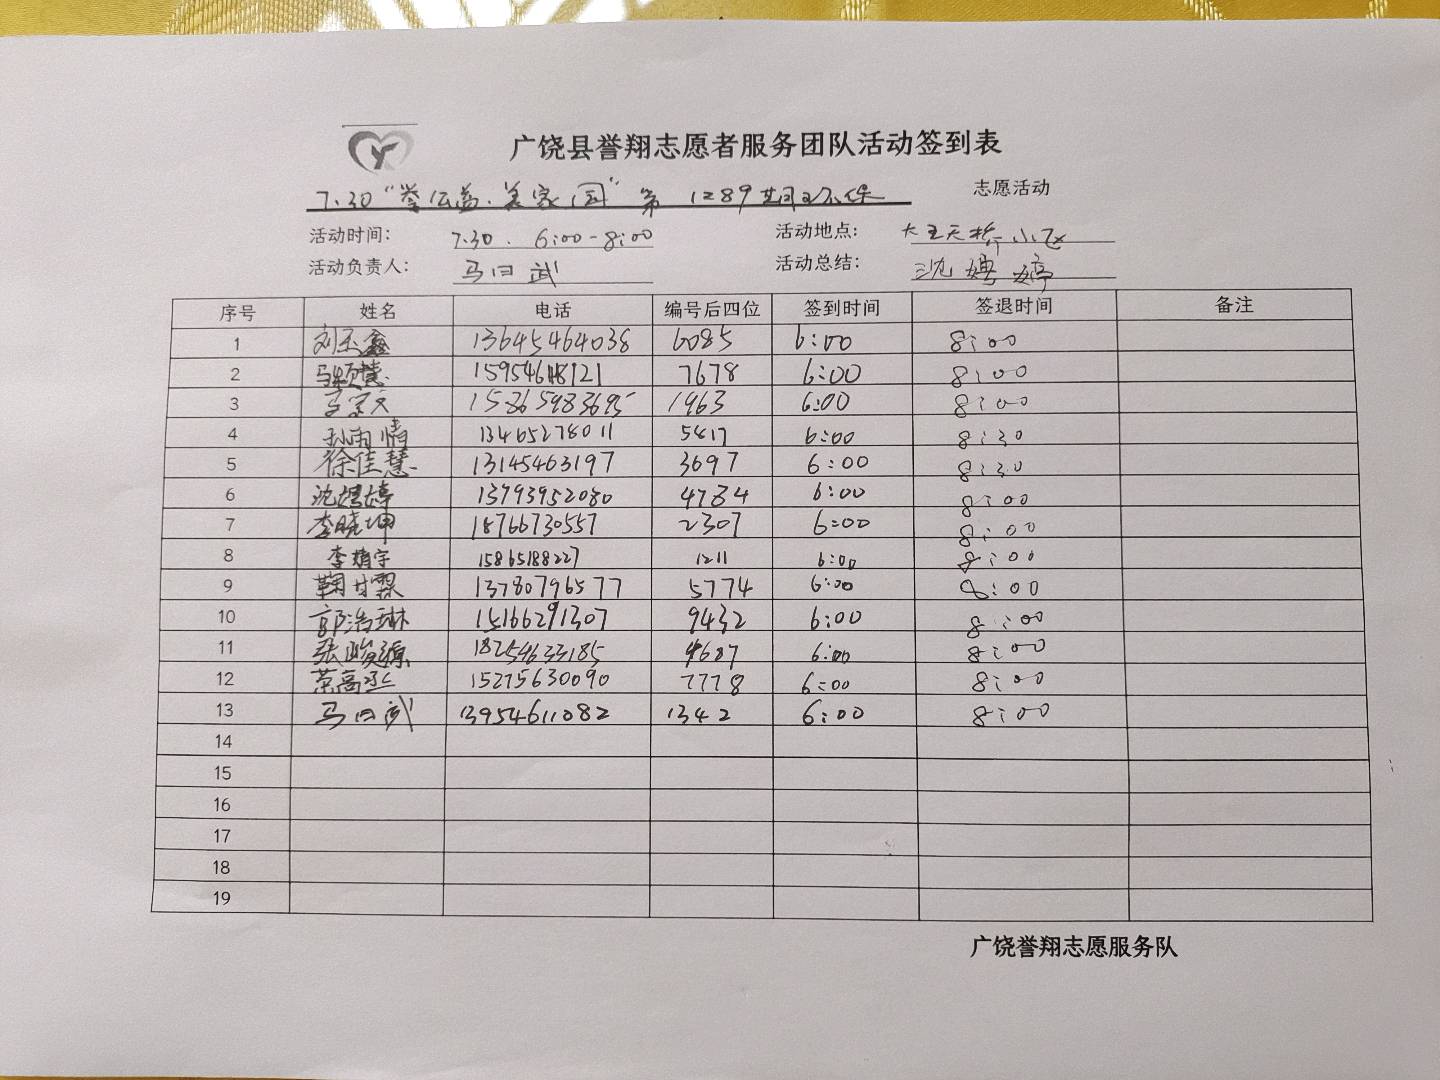 广饶县誉翔志愿者服务团队活动签到表
7.30"誉公益.美家园"第1289期环保 志愿活动
活动时间: 7.30. 6:00-8:00 活动地点: 大王天桥小飞
活动负责人: 马曰武 活动总结: 沈娉婷
序号 姓名 电话 编号后四位 签到时间 签退时间 备注
1 刘玉鑫 13645464038 6085 6:00 8:00
2 马颖慧 15954618121 7678 6:00 8:00
3 15865983695 1963 6:00 8:00
4 孙雨情 13465278011 5817 6:00 8:30
5 徐佳慧 13145463197 3697 6:00 8:30
6 沈娉婷 13793952080 4784 6:00 8:00
7 李晓坤 18766730557 2307 6:00 8:00
8 李婧宇 15865188227 1211 6:00 8:00
9 鞠甘霖 13780796577 5774 6:00 8:00
10 郭浩琳 15166291307 9432 6:00 8:00
11 张峻源 18254633185 9687 6:00 8:00
12 荣高丞 15275630090 7778 6:00 8:00
13 马曰武 13954611082 1342 6:00 8:00
14
15
16
17
18
19
广饶誉翔志愿服务队